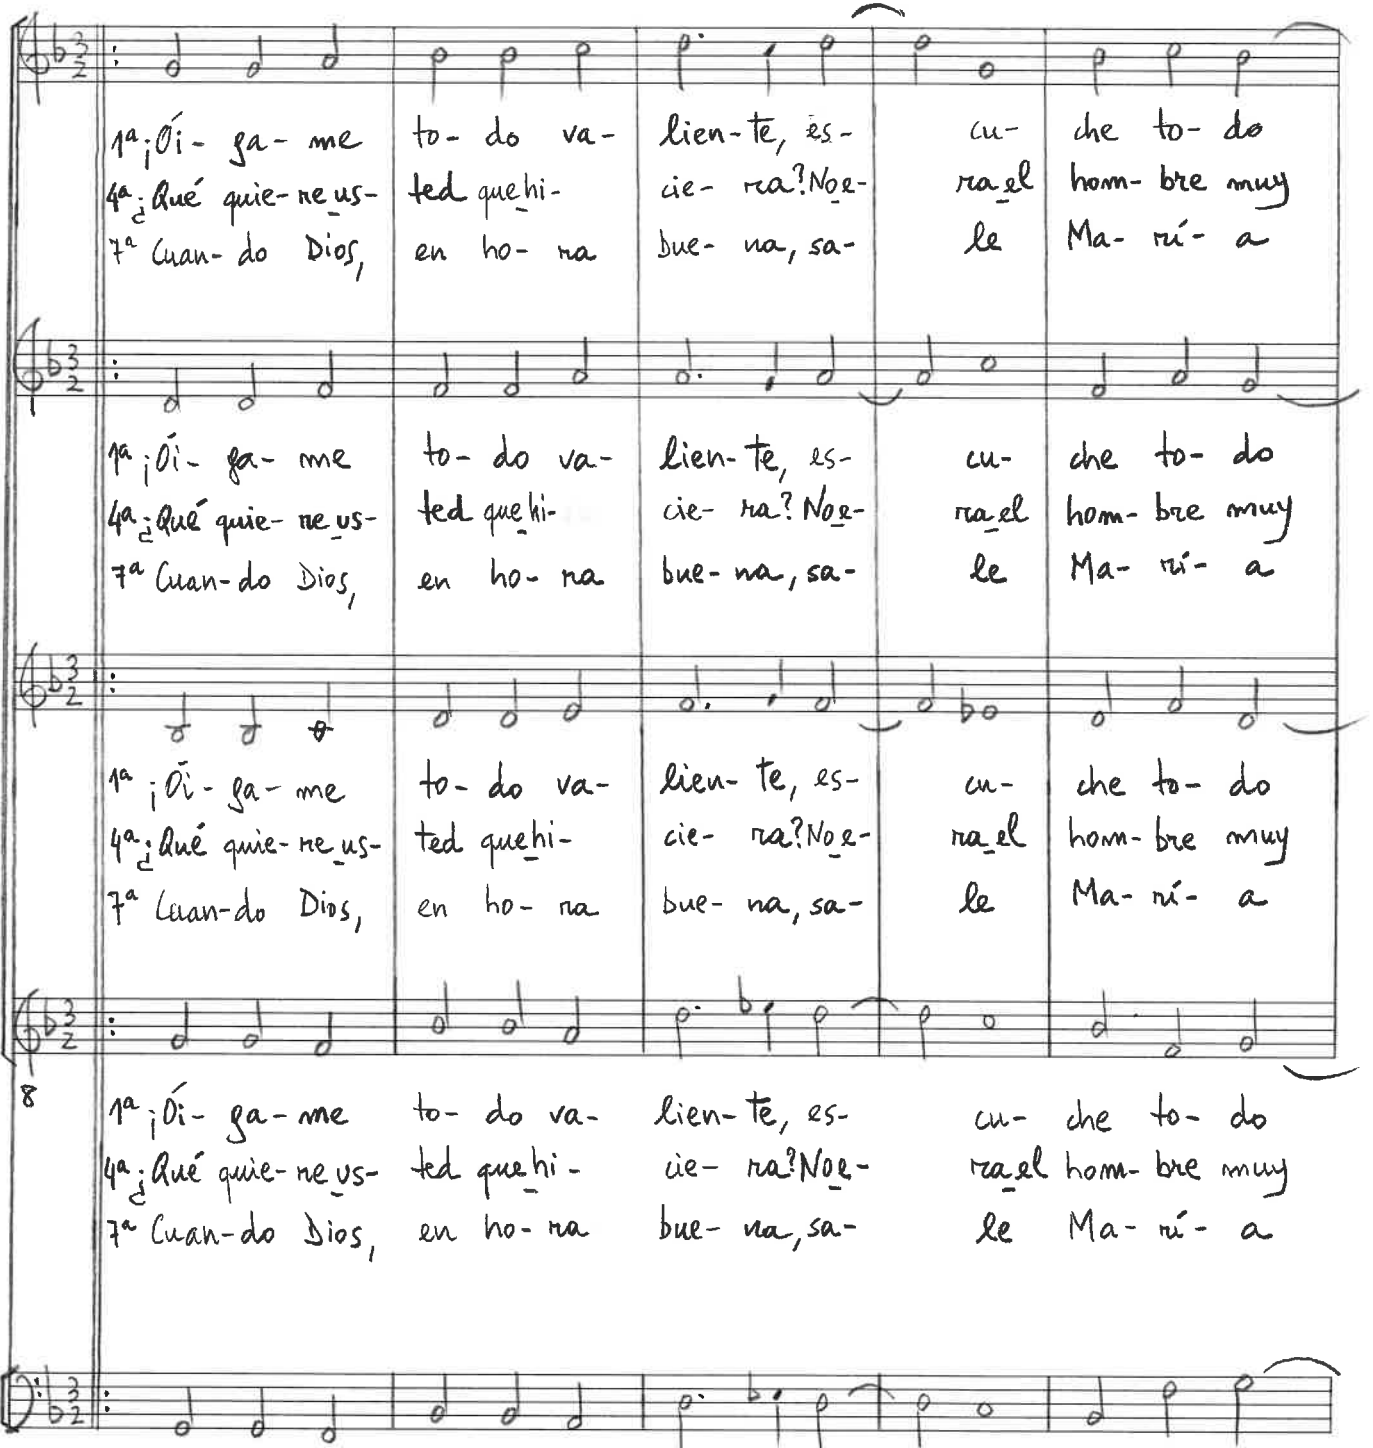 3
2
1ª ¡Ói- ga- me to- do va- lien- te, es- cu- che to- do
4ª ¿Qué quie- re us- ted que hi- cie- ra? No e- ra el hom- bre muy
7ª Cuan- do Dios, en ho- ra bue- na, sa- le Ma- rí- a
3
2
1ª ¡Ói- ga- me to- do va- lien- te, es- cu- che to- do
4ª ¿Qué quie- re us- ted que hi- cie- ra? No e- ra el hom- bre muy
7ª Cuan- do Dios, en ho- ra bue- na, sa- le Ma- rí- a
3
2
1ª ¡Ói- ga- me to- do va- lien- te, es- cu- che to- do
4ª ¿Qué quie- re us- ted que hi- cie- ra? No e- ra el hom- bre muy
7ª Cuan- do Dios, en ho- ra bue- na, sa- le Ma- rí- a
3
2
8
1ª ¡Ói- ga- me to- do va- lien- te, es- cu- che to- do
4ª ¿Qué quie- re us- ted que hi- cie- ra? No e- ra el hom- bre muy
7ª Cuan- do Dios, en ho- ra bue- na, sa- le Ma- rí- a
3
2